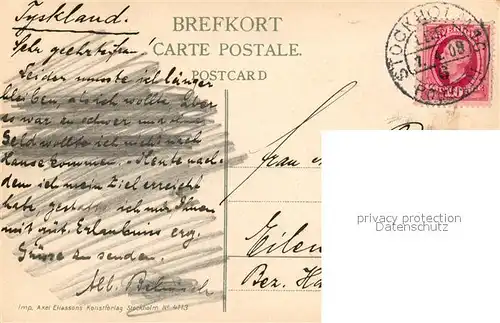 Tyskland.
BREFKORT
CARTE POSTALE.
POSTCARD
Sehr geehrte
Leider musste ich länger
bleiben, als ich wollte. Aber
es war zu schwer und ohne
Geld wollte ich nicht nach
Hause kommen. Heute nach-
dem ich mein Ziel erreicht
habe, gestatte ich mir Ihnen
mit gut. Erlaubnis erg.
Grüsse zu senden.
Alb.
Imp. Axel Eliassons Konstförlag Stockholm. No. 4113
STOCKHOLM
09
Frau
Eilen
Bez. Ha
privacy protection
watermark